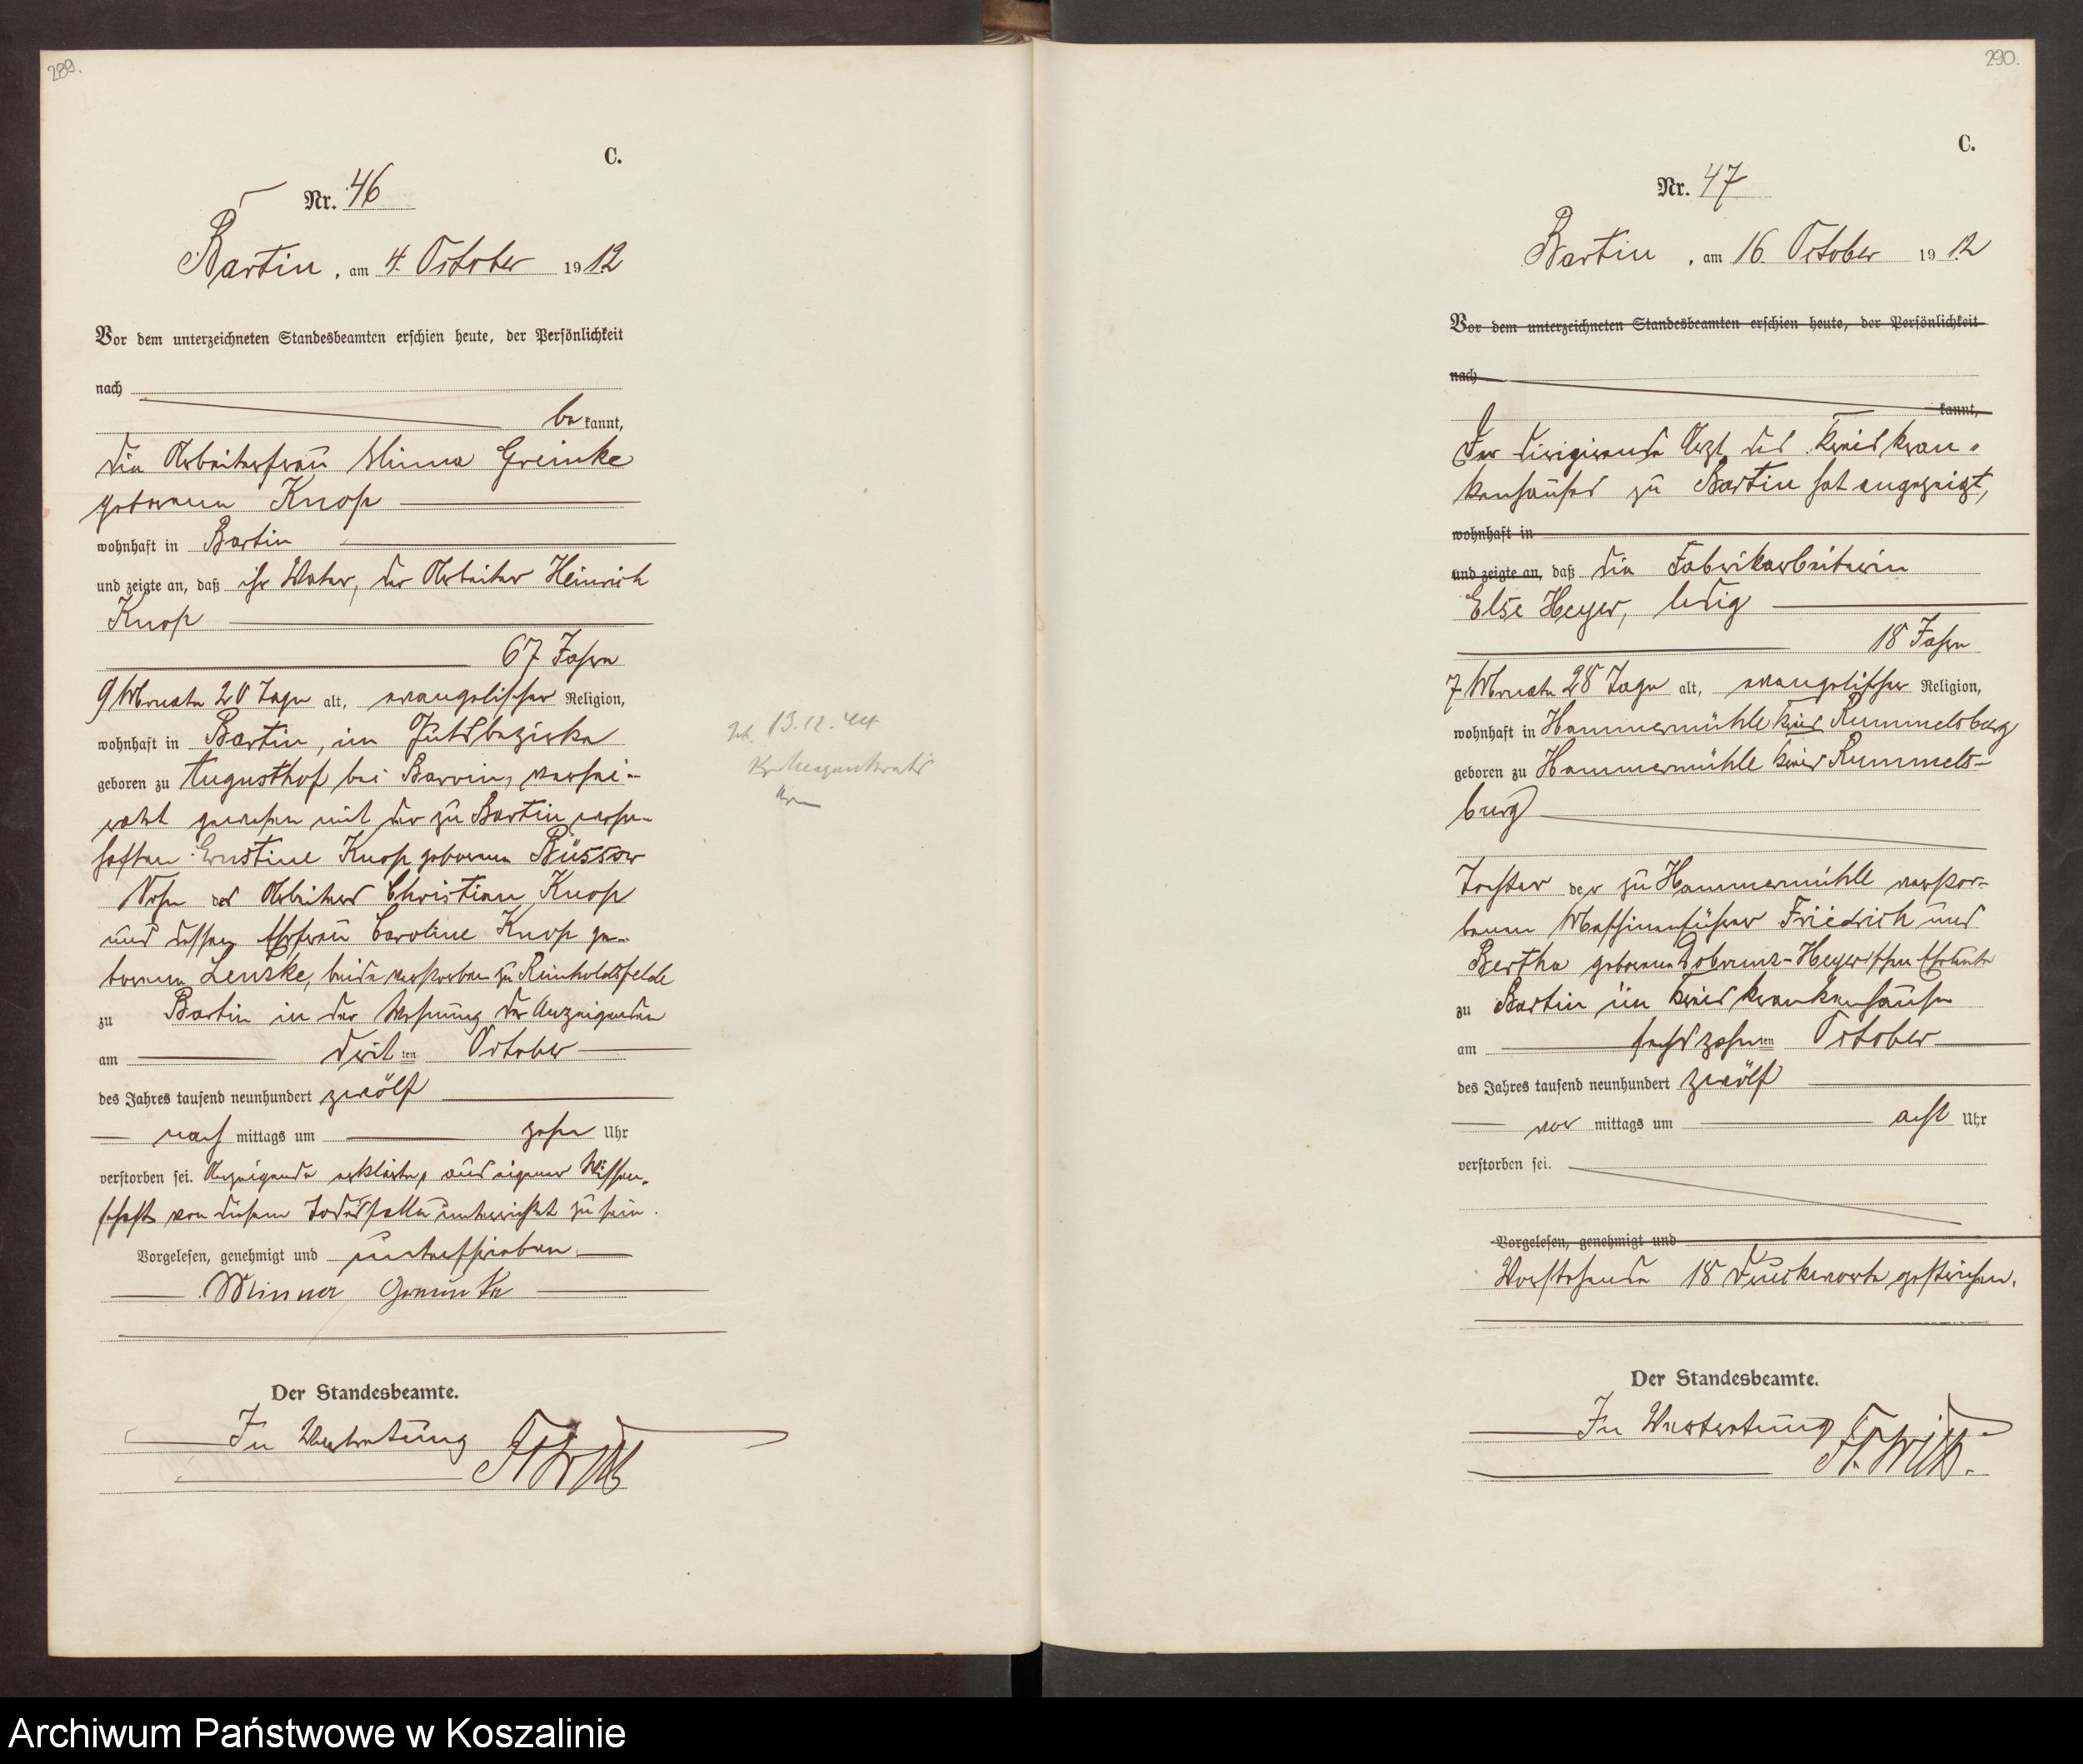 289.
C.
Nr. 46
Bartin, am 4. October 1912
Vor dem unterzeichneten Standesbeamten erschien heute, der Persönlichkeit
nach
be kannt,
die Arbeiterfrau Minna Greinke
geborenen Knop
wohnhaft in Bartin
und zeigte an, daß ihr Vater, der Arbeiter Heinrich
Knop
67 Jahre
9 Monate 20 Tage alt, evangelischer Religion,
wohnhaft in Bartin, im Gutsbezirke
geboren zu Augusthof bei Barvin, verhei-
ratet gewesen mit der zu Bartin wohn-
haften Ernstine Knop geborenen Büssow
Sohn des Arbeiters Christian Knop
und dessen Ehefrau Caroline Knop ge-
borenen Lenzke, beide verstorben zu Reinholdsfelde
zu Bartin in der Wohnung der Anzeigenden
am drit ten October
des Jahres tausend neunhundert zwölf
nach mittags um zehn Uhr
verstorben sei. Anzeigende erklärte, aus eigener Wissen-
schaft von diesem Todesfalle unterrichtet zu sein.
Vorgelesen, genehmigt und unterschrieben
Minna Greinke
Der Standesbeamte.
In Vertretung
13.12.44
290.
C.
Nr. 47
Bartin, am 16. October 1912
Vor dem unterzeichneten Standesbeamten erschien heute, der Persönlichkeit
nach
kannt,
Der dirigirende Arzt des Kreiskran-
kenhauses zu Bartin hat angezeigt,
wohnhaft in
und zeigte an, daß die Fabrikarbeiterin
Else Heyer, ledig
18 Jahre
7 Monate 28 Tage alt, evangelischer Religion,
wohnhaft in Hammermühle Kreis Rummelsburg
geboren zu Hammermühle Kreis Rummels-
burg
Tochter der zu Hammermühle verstor-
benen Maschinenführer Friedrich und
Bertha geborenen Heyerschen Eheleute
zu Bartin im Kreiskrankenhause
am sechszehn ten October
des Jahres tausend neunhundert zwölf
vor mittags um acht Uhr
verstorben sei.
Vorgelesen, genehmigt und
Vorstehende 18 Druckworte gestrichen.
Der Standesbeamte.
In Vertretung
Archiwum Państwowe w Koszalinie